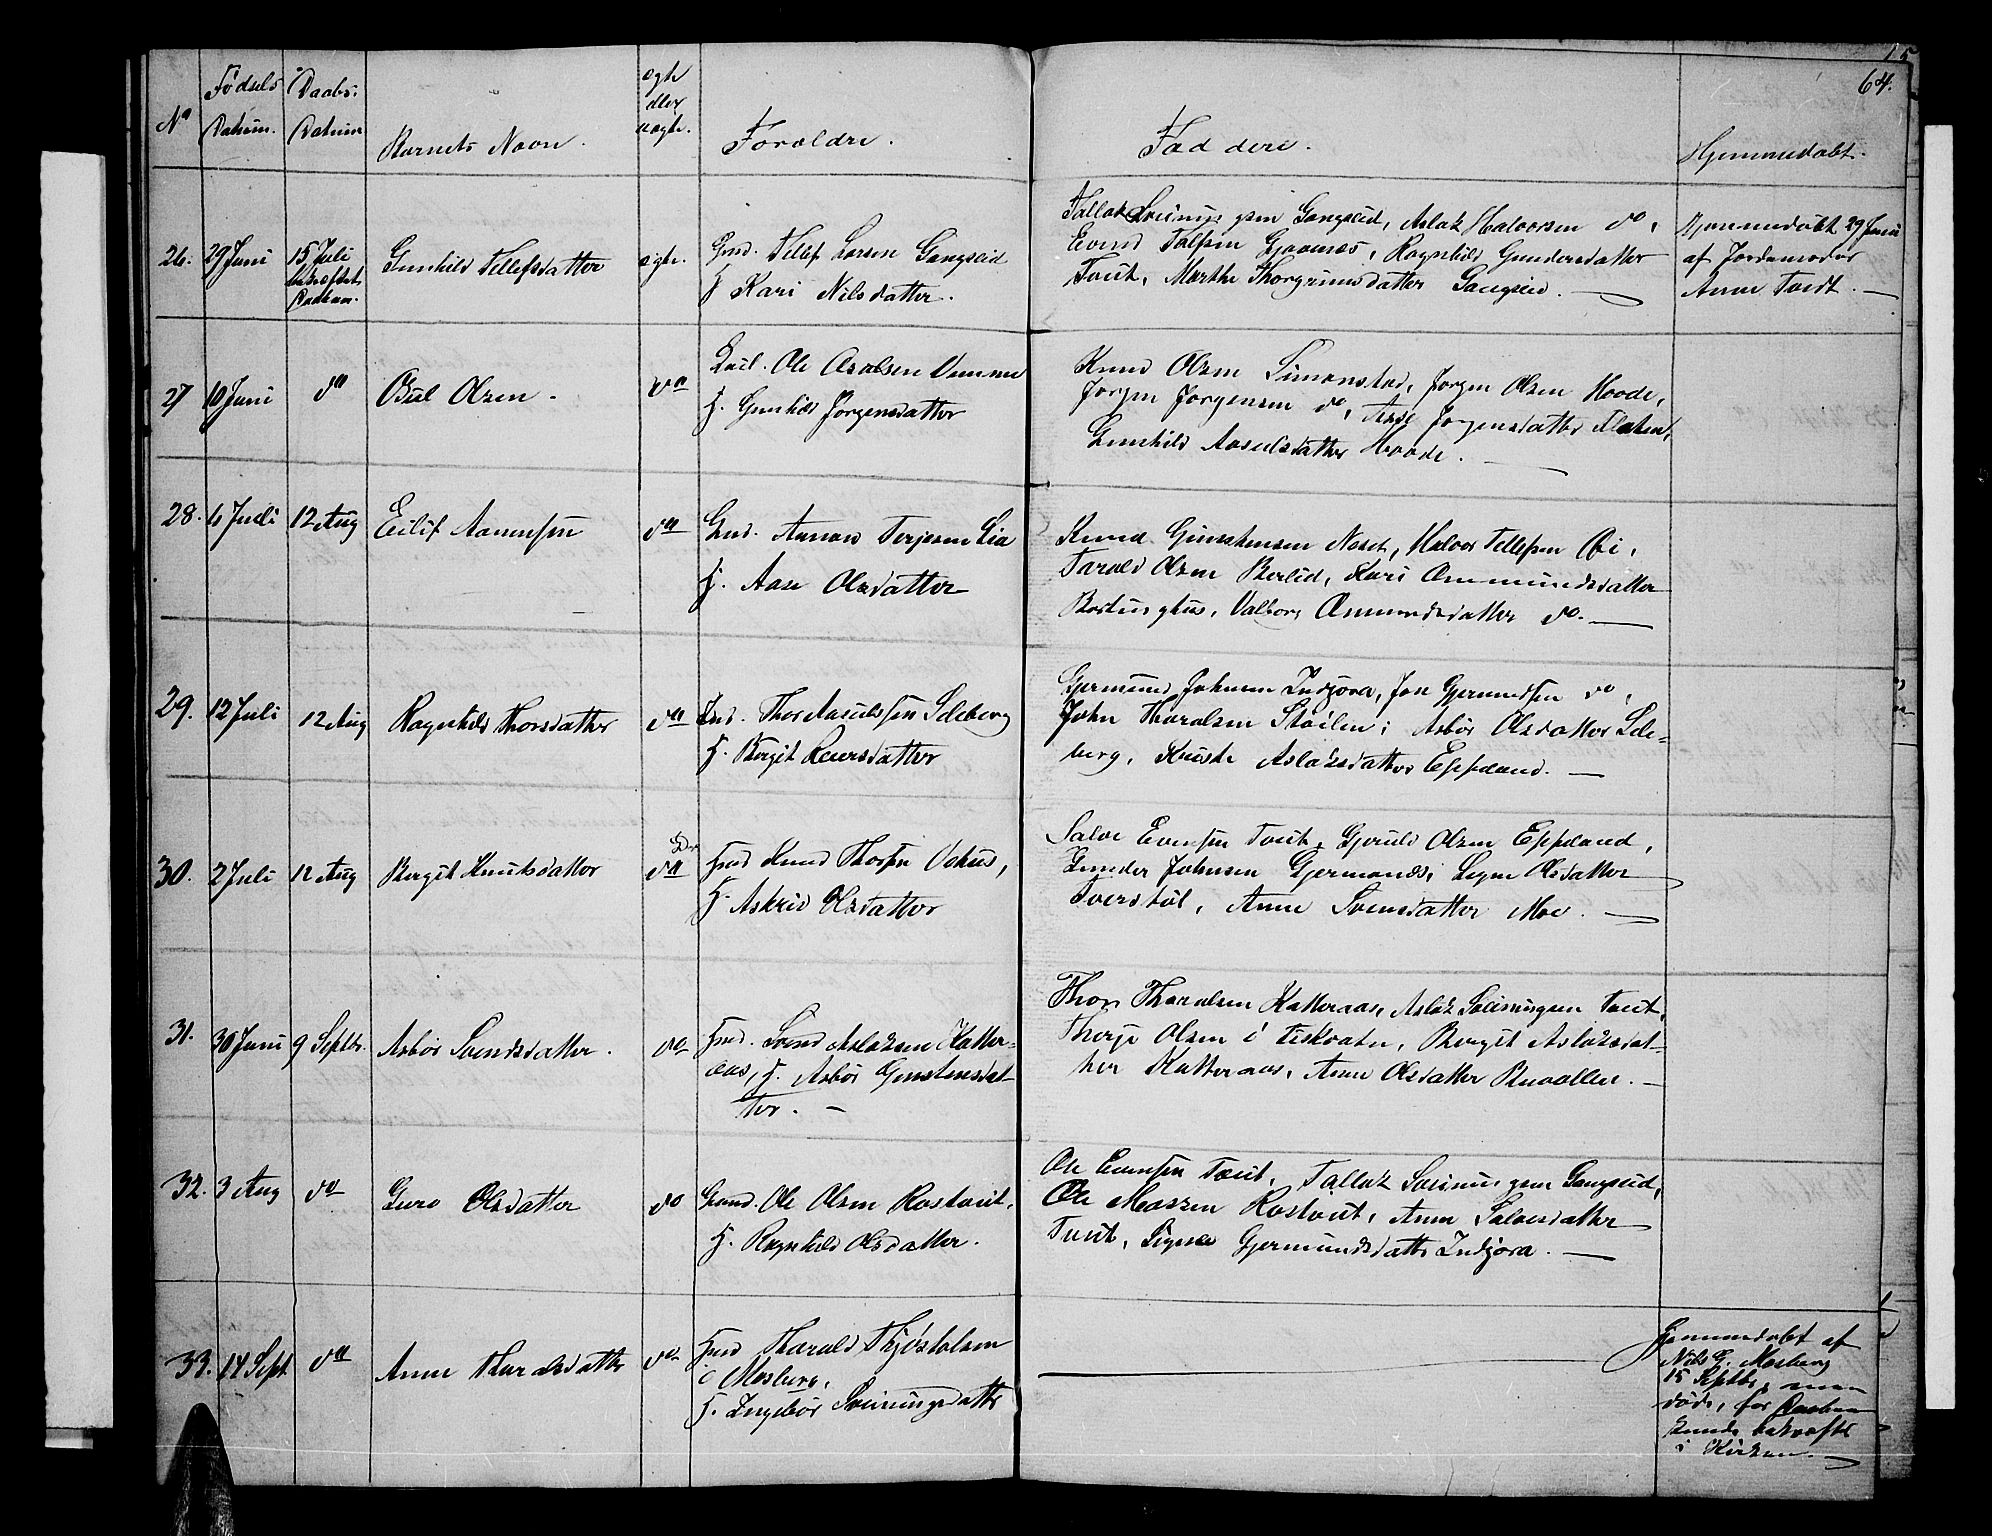 15
64.
No
Fødsels
Datum.
Daabs:
Datum
Barnets Navn.
ægte
eller
uægte.
Forældre.
Faddere.
Hjemmedøbt.
26. 29 Juni 15 Juli Gunhild Tellefsdatter ægte. Gmd. Tellef Larsen Gangseid
bekræftet
Daaben.
H Kari Nilsdatter.
Tallak Sveinungsen Gangseid, Aslak Halvorsen do,
Evend Talfsen Gjavnæs, Ragnhild Gundersdatter
Tveit, Marthe Thorgrimsdatter Gangsei.
Hjemmedøbt 29 Juni
af Jordemoder
Anne Tvedt.
27 10 Juni do Bül Olsen. do Ole Osulsen
H. Gunhild Jørgensdatter
Knud Olsen Simonstad, Jørgen Olsen Hovde,
Jørgen Jørgensen do, Jørgensdatter Flaten,
Gunhild Aasulsdatter Hovde.
28. 6 Juli 12 Aug Eilif Aanonsen do Gmd. Aanon Terjesen Lia
H. Aase Olsdatter
Knud Gunstensen Næset, Halvor Tellefsen
Tarald Olsen Berlid, Kari Ommundsdatter
Valborg Ommundsdatter do.
29. 12 Juli 12 Aug Ragnhild Thorsdatter do Gmd. Thor Aasulssen Seleberg
H. Bergit Reiersdatter
Gjermund Johnsen Indjora, Jon Gjermundsen do,
John Tharalsen Støilen, Asbør Olsdatter Sele=
berg, Aslaksdatter Eppeland.
30. 2 Juli 12 Aug Bergit Knutsdatter do Gmd Knud Thorsen Vehus,
H. Askrid Olsdatter
Salve Evensen Tveit, Gjeruld Olsen Eppeland,
Gunder Johnsen Gjermonæs, Signe Olsdatter
Tverstøl, Anne Svensdatter Moe.
31. 30 Juni 9 Septbr. Asbør Svendsdatter. do Gmd. Svend Aslaksen Katter=
aas, H. Asbør Gunstensdat-
ter.
Thor Tharalsen Katteraas, Aslak Sveinungsen Tveit,
Therje Olsen i Fiskvatn, Bergit Aslaksdat=
ter Katteraas, Anne Olsdatter
32. 3 Aug do Guro Olsdatter do Gmd. Ole Olsen Rostveit.
H. Ragnhild Olsdatter.
Ole Evensen Tveit, Tallak Sveinungsen Gangseid,
Ole Rostveit, Anne Salvesdatter
Tveit, Signe Gjermundsdatter Indjora.
33. 14 Sept do Anne Tharalsdatter do Gmd Tharald Thjøstolsen
i Mosberg,
H. Ingebør Sveinungsdatter
Hjemmedøbt af
Nils G. Mosberg
15 Septbr, men
døde, før Daaben
kunde bekræftes
i Kirken.